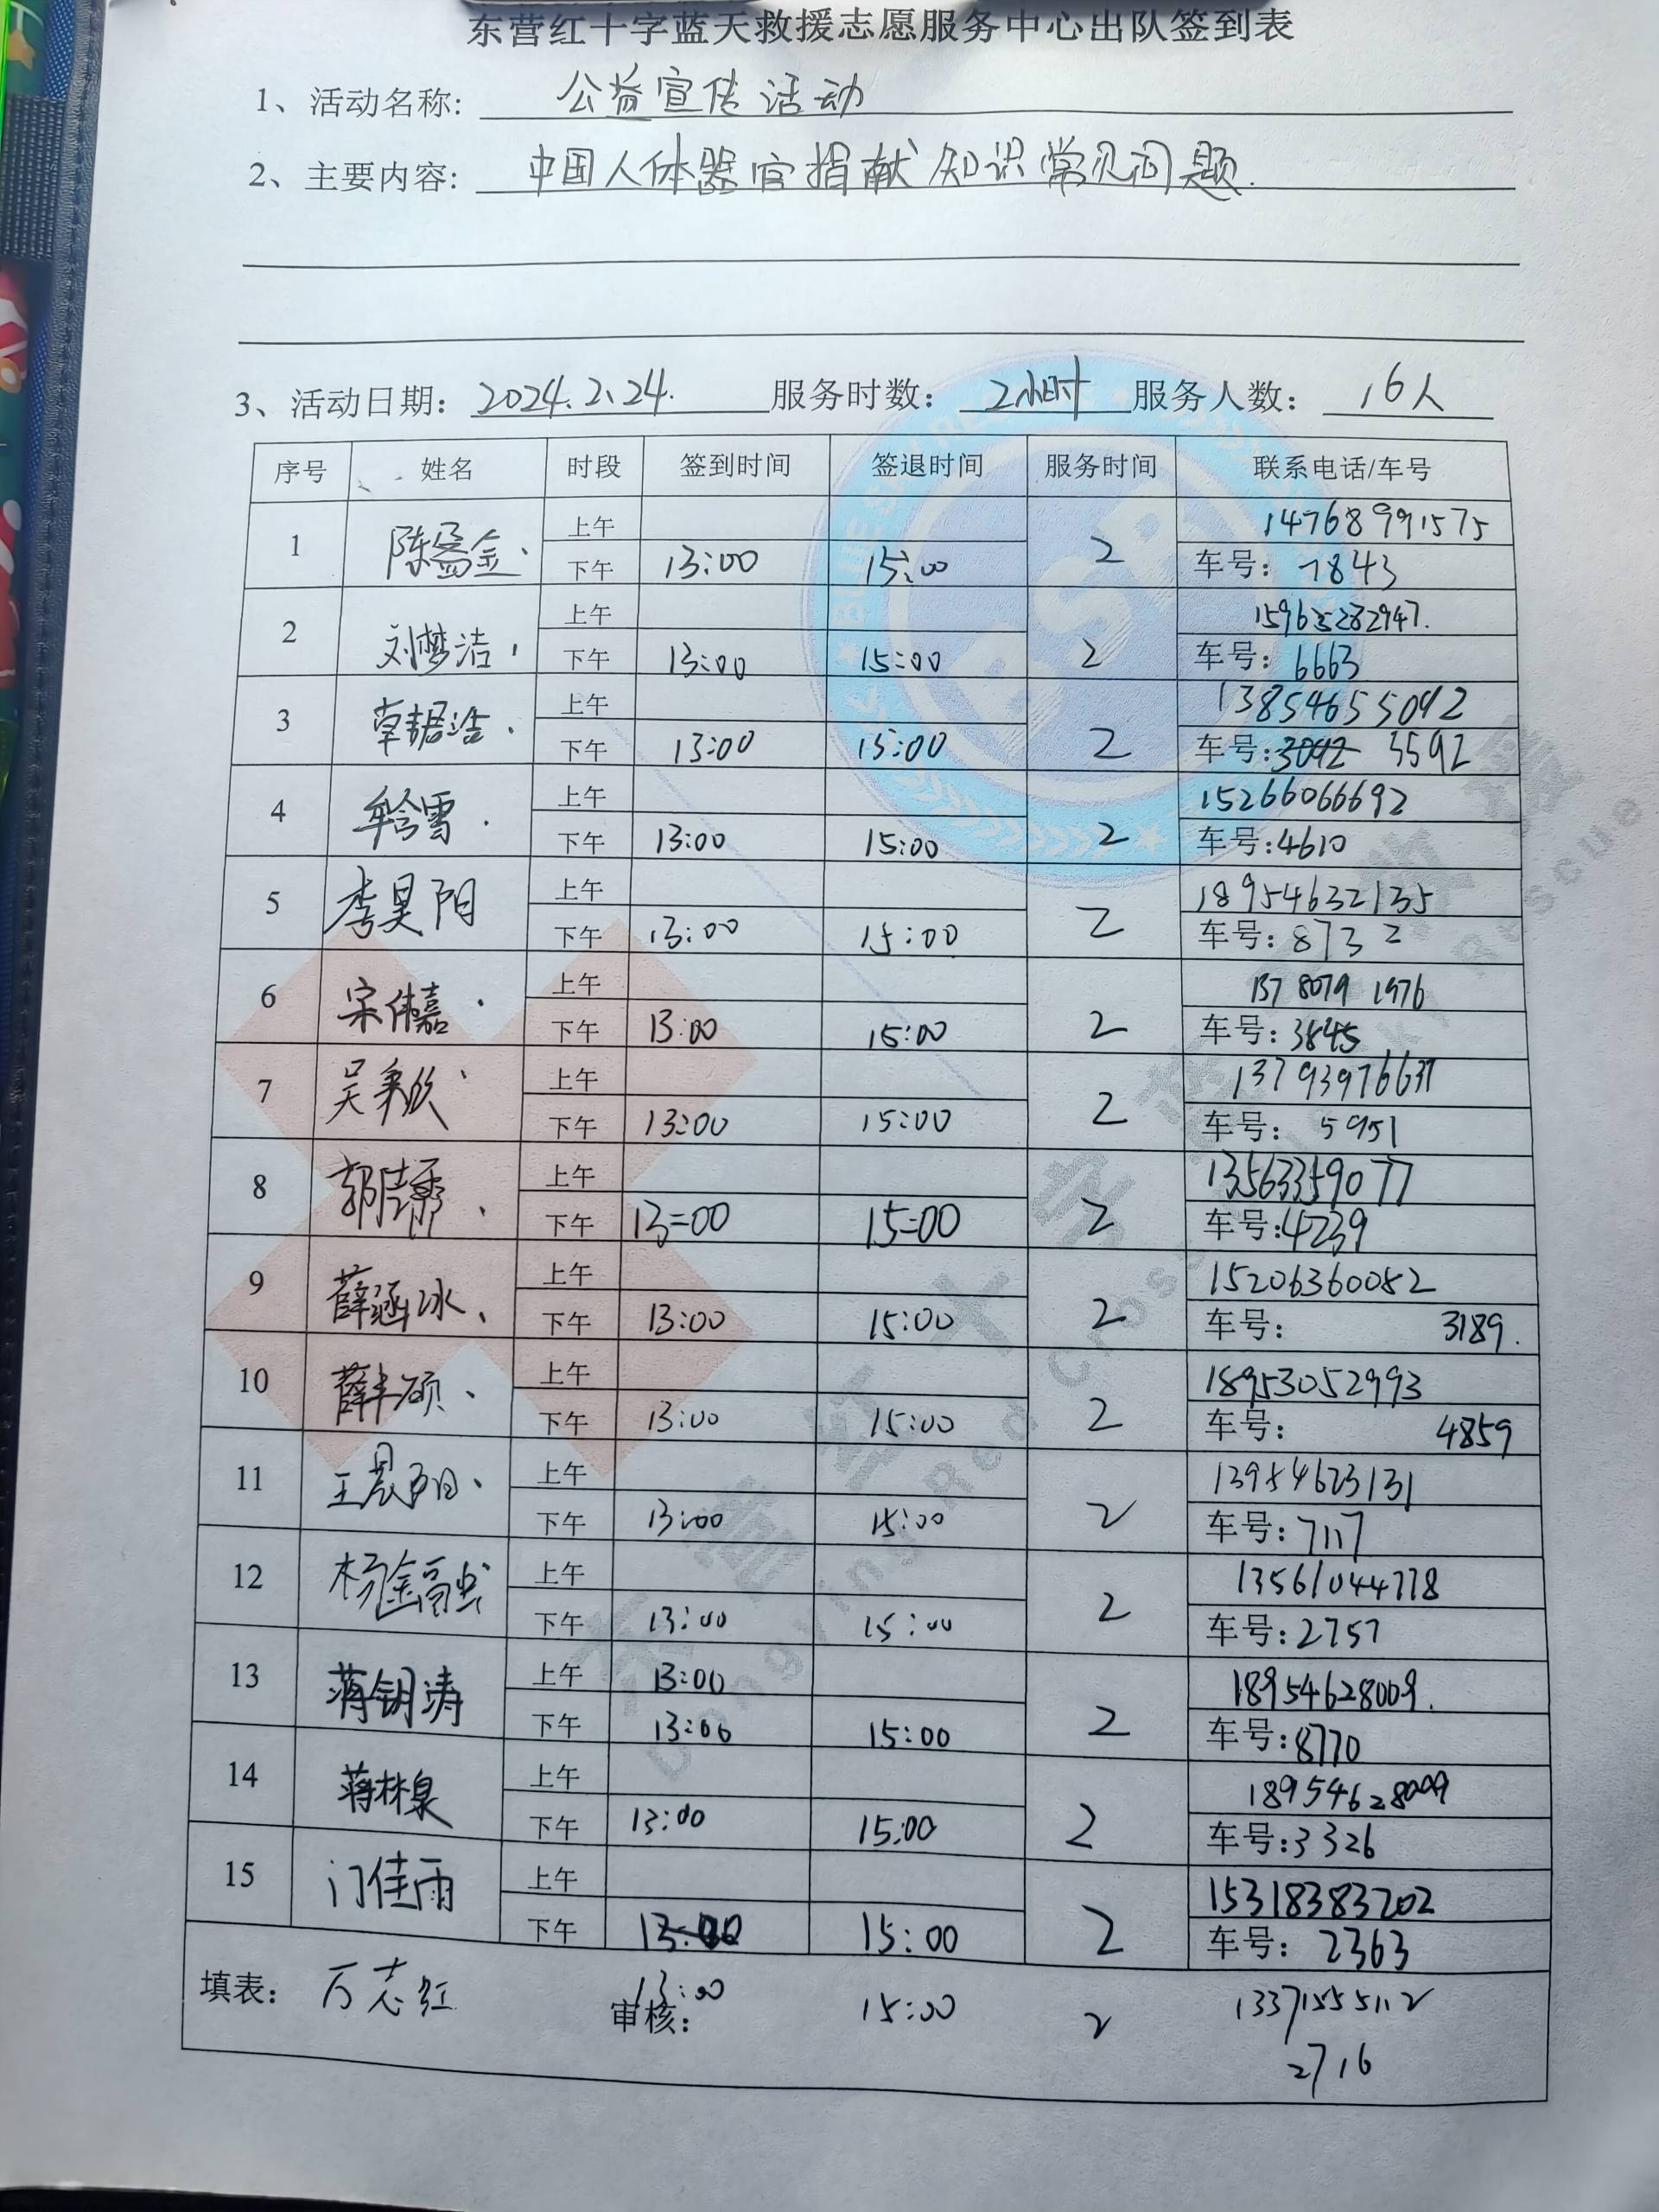 东营红十字蓝天救援志愿服务中心出队签到表
1、活动名称: 公益宣传活动
2、主要内容: 中国人体器官捐献知识常见问题.
3、活动日期: 2024.2.24. 服务时数: 2小时 服务人数: 16人
序号 姓名 时段 签到时间 签退时间 服务时间 联系电话/车号
上午 14768991575
1 陈盈金 下午 13:00 15:00 2 车号: 7843
上午 15965282947.
2 刘梦洁 下午 13:00 15:00 2 车号: 6663
上午 13854655092
3 下午 13:00 15:00 2 车号: 3042 3592
上午 15266066692
4 下午 13:00 15:00 2 车号:4610
上午 18954632135
5 李昊阳 下午 13:00 15:00 2 车号: 8732
上午 137 8079 1976
6 宋伟嘉 下午 13:00 15:00 2 车号: 3845
上午 13793976637
7 吴秉欣 下午 13:00 15:00 2 车号: 5951
上午 13563359077
8 下午 13:00 15:00 2 车号:4239
上午 15206360082
9 薛涵冰 下午 13:00 15:00 2 车号: 3189.
上午 18953052993
10 薛丰硕 下午 13:00 15:00 2 车号: 4859
上午 13954623131
11 王晨阳 下午 13:00 15:00 2 车号: 7117
上午 13561044778
12 下午 13:00 15:00 2 车号:2757
上午 13:00 18954628009.
13 蒋钥涛 下午 13:00 15:00 2 车号:8770
上午 18954628009
14 蒋林泉 下午 13:00 15:00 2 车号:3326
上午 15318383202
15 门佳雨 下午 13:00 15:00 2 车号: 2363
填表: 万志红 审核: 13:00 15:00 2 13371555112
2716
东营红十字蓝天救援
Dongying Red Cross Blue Sky Rescue
BSR